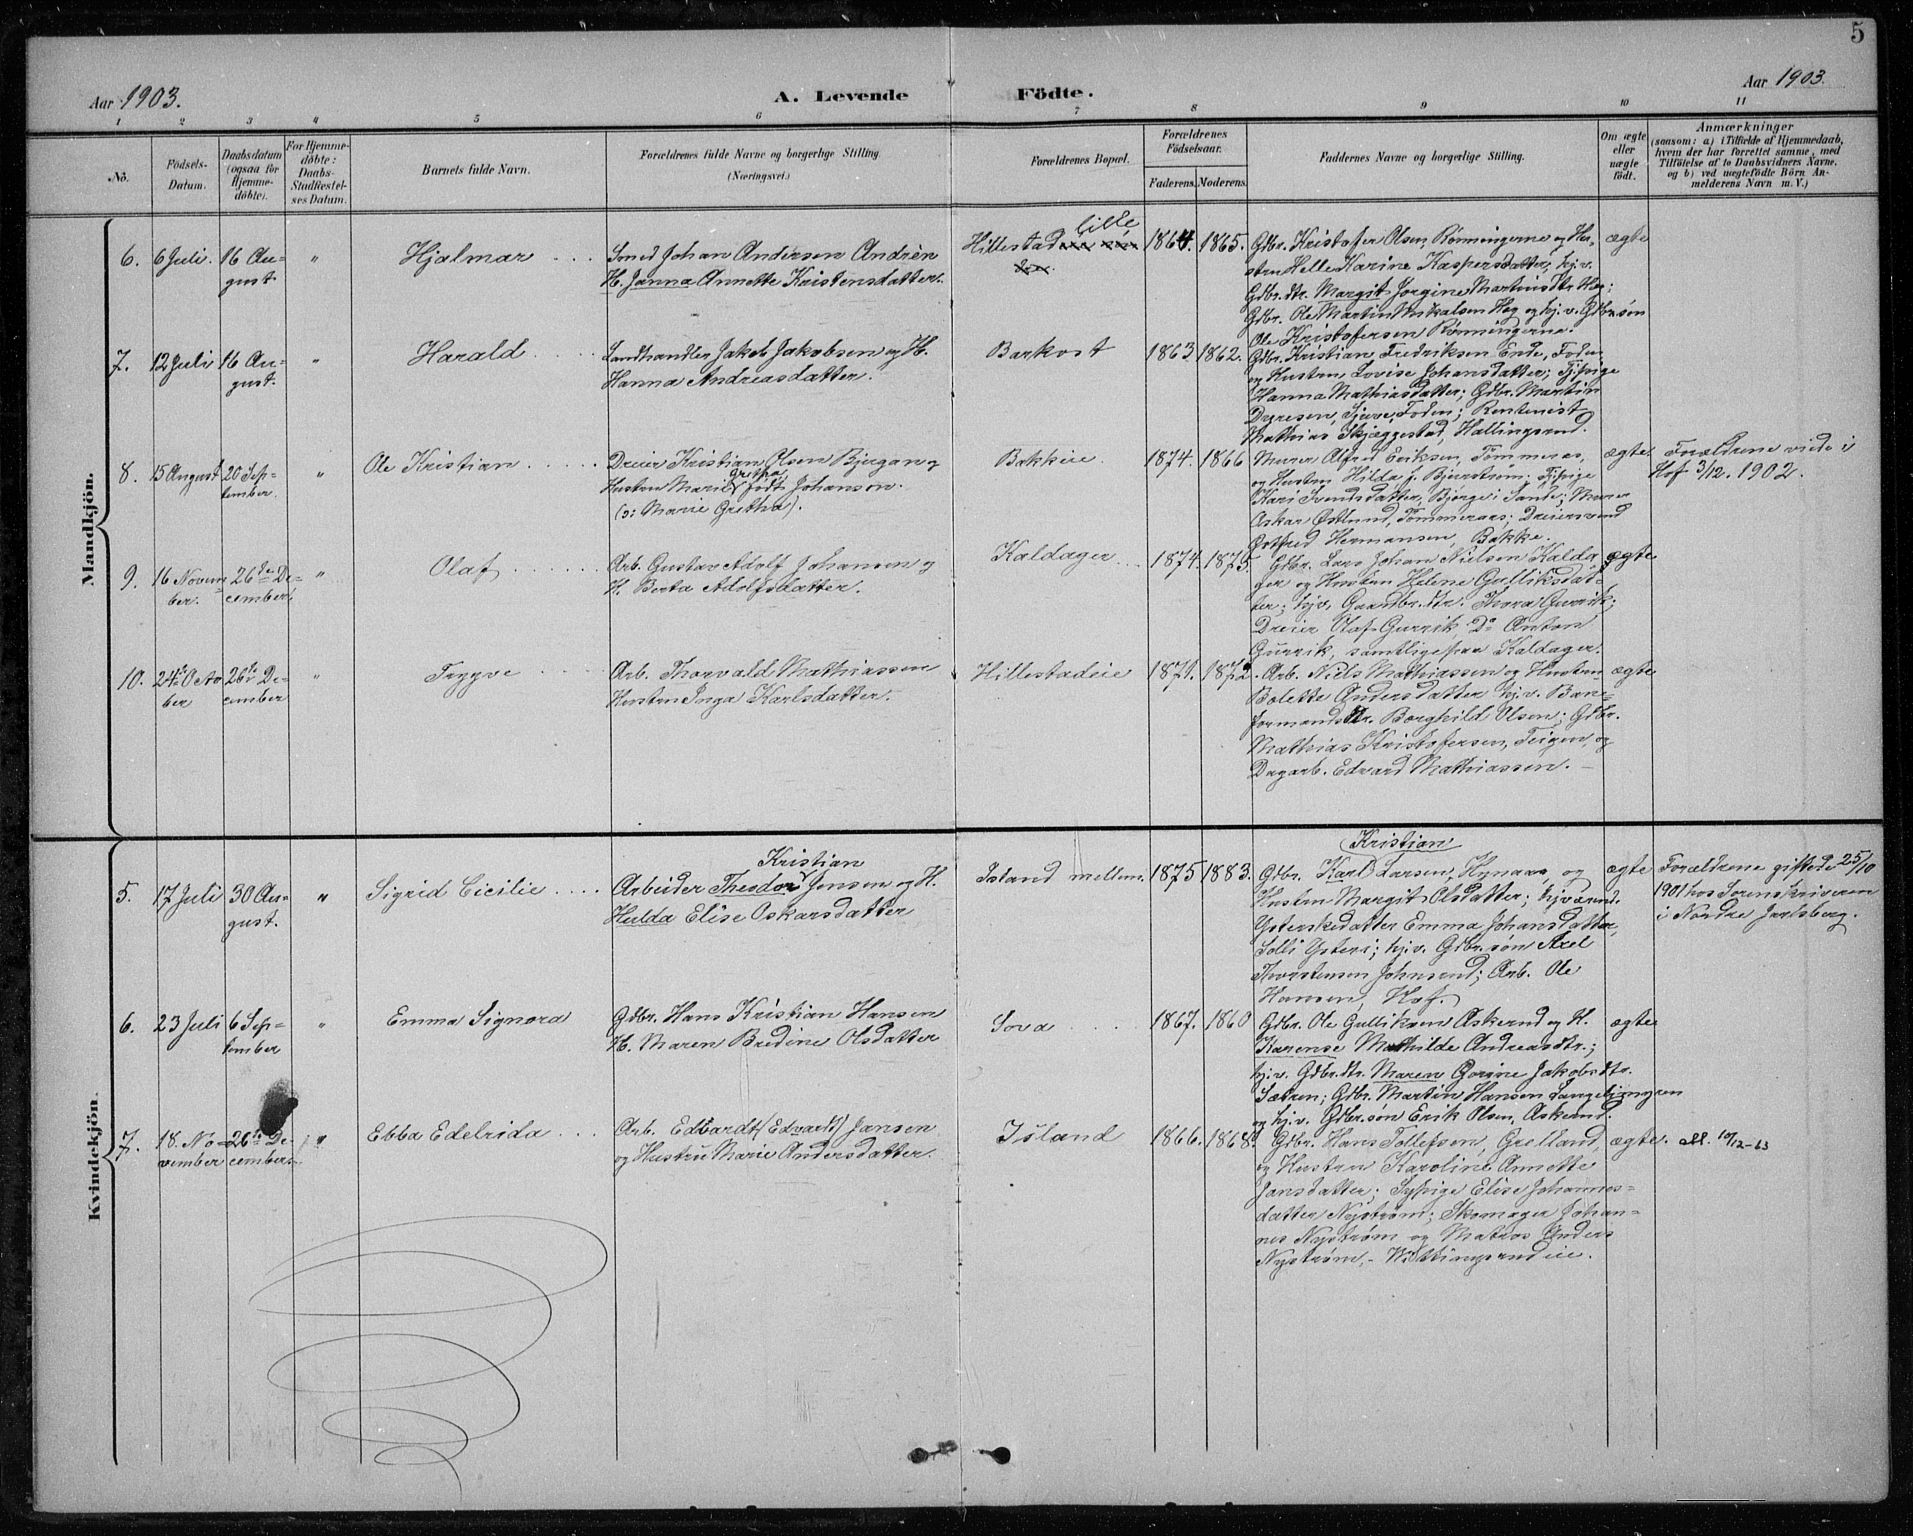 5
Aar 1903.
A. Levende Födte.
Aar 1903.
1 2 3 4 5 6 7 8 9 10 11
No.
Födsels-
Datum.
Daabsdatum
(ogsaa for
Hjemme-
döbte).
For Hjemme-
döbte:
Daabs-
Stadfæstel-
ses Datum.
Barnets fulde Navn.
Forældrenes fulde Navne og borgerlige Stilling.
(Næringsvei.)
Forældrenes Bopæl.
Forældrenes
Födselsaar.
Faderens. Moderens.
Faddernes Navne og borgerlige Stilling.
Om ægte
eller
uægte
födt.
Anmærkninger
(saasom: a) i Tilfælde af Hjemmedaab,
hvem der har forrettet samme, med
Tilföielse af to Daabsvidners Navne,
og b) ved uægtefödte Börn An-
melderens Navn m. V.)
Mandkjön.
6. 6 Juli. 16 Au-
gust
"
Hjalmar
Smed Johan Andersen Andrèn
H. Janna Annette Kristensdatter.
Hillestad lille
1864. 1865.
Gdbr. Kristofer Olsen, Rønningerne og Hu-
stru Helle Karine Kaspersdatter; hj.v.
Gdbr.dtr. Margit Jorgine Martinsdtr Hag;
Gdbr. Ole Martin Mikalsen Hag og hj.v. Gdbr.søn
Ole Kristofersen Rønningerne.
ægte
7. 12 Juli 16 Au-
gust.
"
Harald
Landhandler Jakob Jakobsen og H.
Hanna Andreasdatter.
Barkost
1863 1862.
Gdbr. Kristian Fredriksen Ende, Foden
og Hustru Lovise Johansdatter; Pi-ge
Hanna Mathiasdatter; Gdbr. Martin
Dyresen, Sjuve, Foden; Rentenist
Mathias Skjæggestad, Hallingsrud.
8. 15 August 20 Sep-
tember.
"
Ole Kristian
Dreier Kristian Olsen Bjugan og
Hustru Marie Gretha født Johanson.
(ɔ: Marie Gretha).
Bakkeie.
1874. 1866
Murer Alfred Eriksen, Tommeras,
og Hustru Hilda f. Bjurstrøm; Pige
Kari Svendsdatter, Bjørge i Sande; Murer
Oskar Østlund, Tommeraas; Dreiersvend
Gotfred Hermansen, Bakke.
ægte
Forældrene viede i
Hof 3/12. 1902.
9. 16 Novem-
ber.
26de De-
cember.
"
Olaf
Arb. Gustav Adolf Johansen og
H. Berta Adolfsdatter.
Kaldager
1874. 1875.
Gdbr. Lars Johan Nielsen Kalda-
ger og Hustru Helene Gulliksdat-
ter; hj.v. Gaardbr.dtr. Thora Gurrik;
Dreier Olaf Gurrik Do Anton
Gurrik, samtlige paa Kaldager.
ægte
10. 24de Octo-
ber
26de De-
cember
"
Trygve
Arb. Thorvald Mathiassen
Hustru Inga Karlsdatter.
Hillestadeie
1871. 1872.
Arb. Niels Mathiassen og Hustru
Bolette Andersdatter hj.v. Ban-
formandsdtr. Borghild Olsen; Gdbr.
Mathias Kristofersen, Teigen, og
Dagarb. Edvard Mathiassen.
ægte
Kvindekjön.
5. 17 Juli 30 Au-
gust.
"
Sigrid Cicilie
Kristian
Arbeider Theodor Jensen og H.
Hulda Elise Oskarsdatter
Island mellem
1875 1883.
Kristian
Gdbr. Karl Larsen, Hynaas og
Hustru Margit Olsdatter; hjværend.
Ysterskedatter Emma Johansdatter,
Solli Ysteri; hj.v. Gdbr.søn Axel
Thorstensen Johnsrud; Arb. Ole
Hansen, Hof.
ægte
Forældrene giftede 25/10
1901 hos Sorenskriveren
i Nordre Jarlsberg.
6. 23 Juli 6 Sep-
tember
"
Emma Signora
Gdbr. Hans Kristian Hansen
H. Maren Bredine Olsdatter
Sova
1867. 1860
Gdbr. Ole Gulliksen Askerud og H.
Karense Mathilde Andreasdtr.;
hj.v. Gdbr.dtr. Maren Gorine Jakobsdtr.
Sætren; Gdbr. Martin Hansen Langebjongren
og hj.v. Gdbrsøn Erik Olsen, Askerud.
ægte
7. 18. No-
vember
26de De-
cember.
"
Ebba Edelrida
Arb. Edvardt (Edvardt) Jansen
og Hustru Marie Andersdatter.
Island
1866. 1868.
Gdbr. Hans Tollefsen, Grelland,
og Hustru Karoline Annette
Jansdatter; Sypige Elise Johannes-
datter Nystrøm; Skomager Johan-
nes Nystrøm og Matros Anders
Nystrøm, - Wittingsrudeie.
ægte.
all. 10/12-63